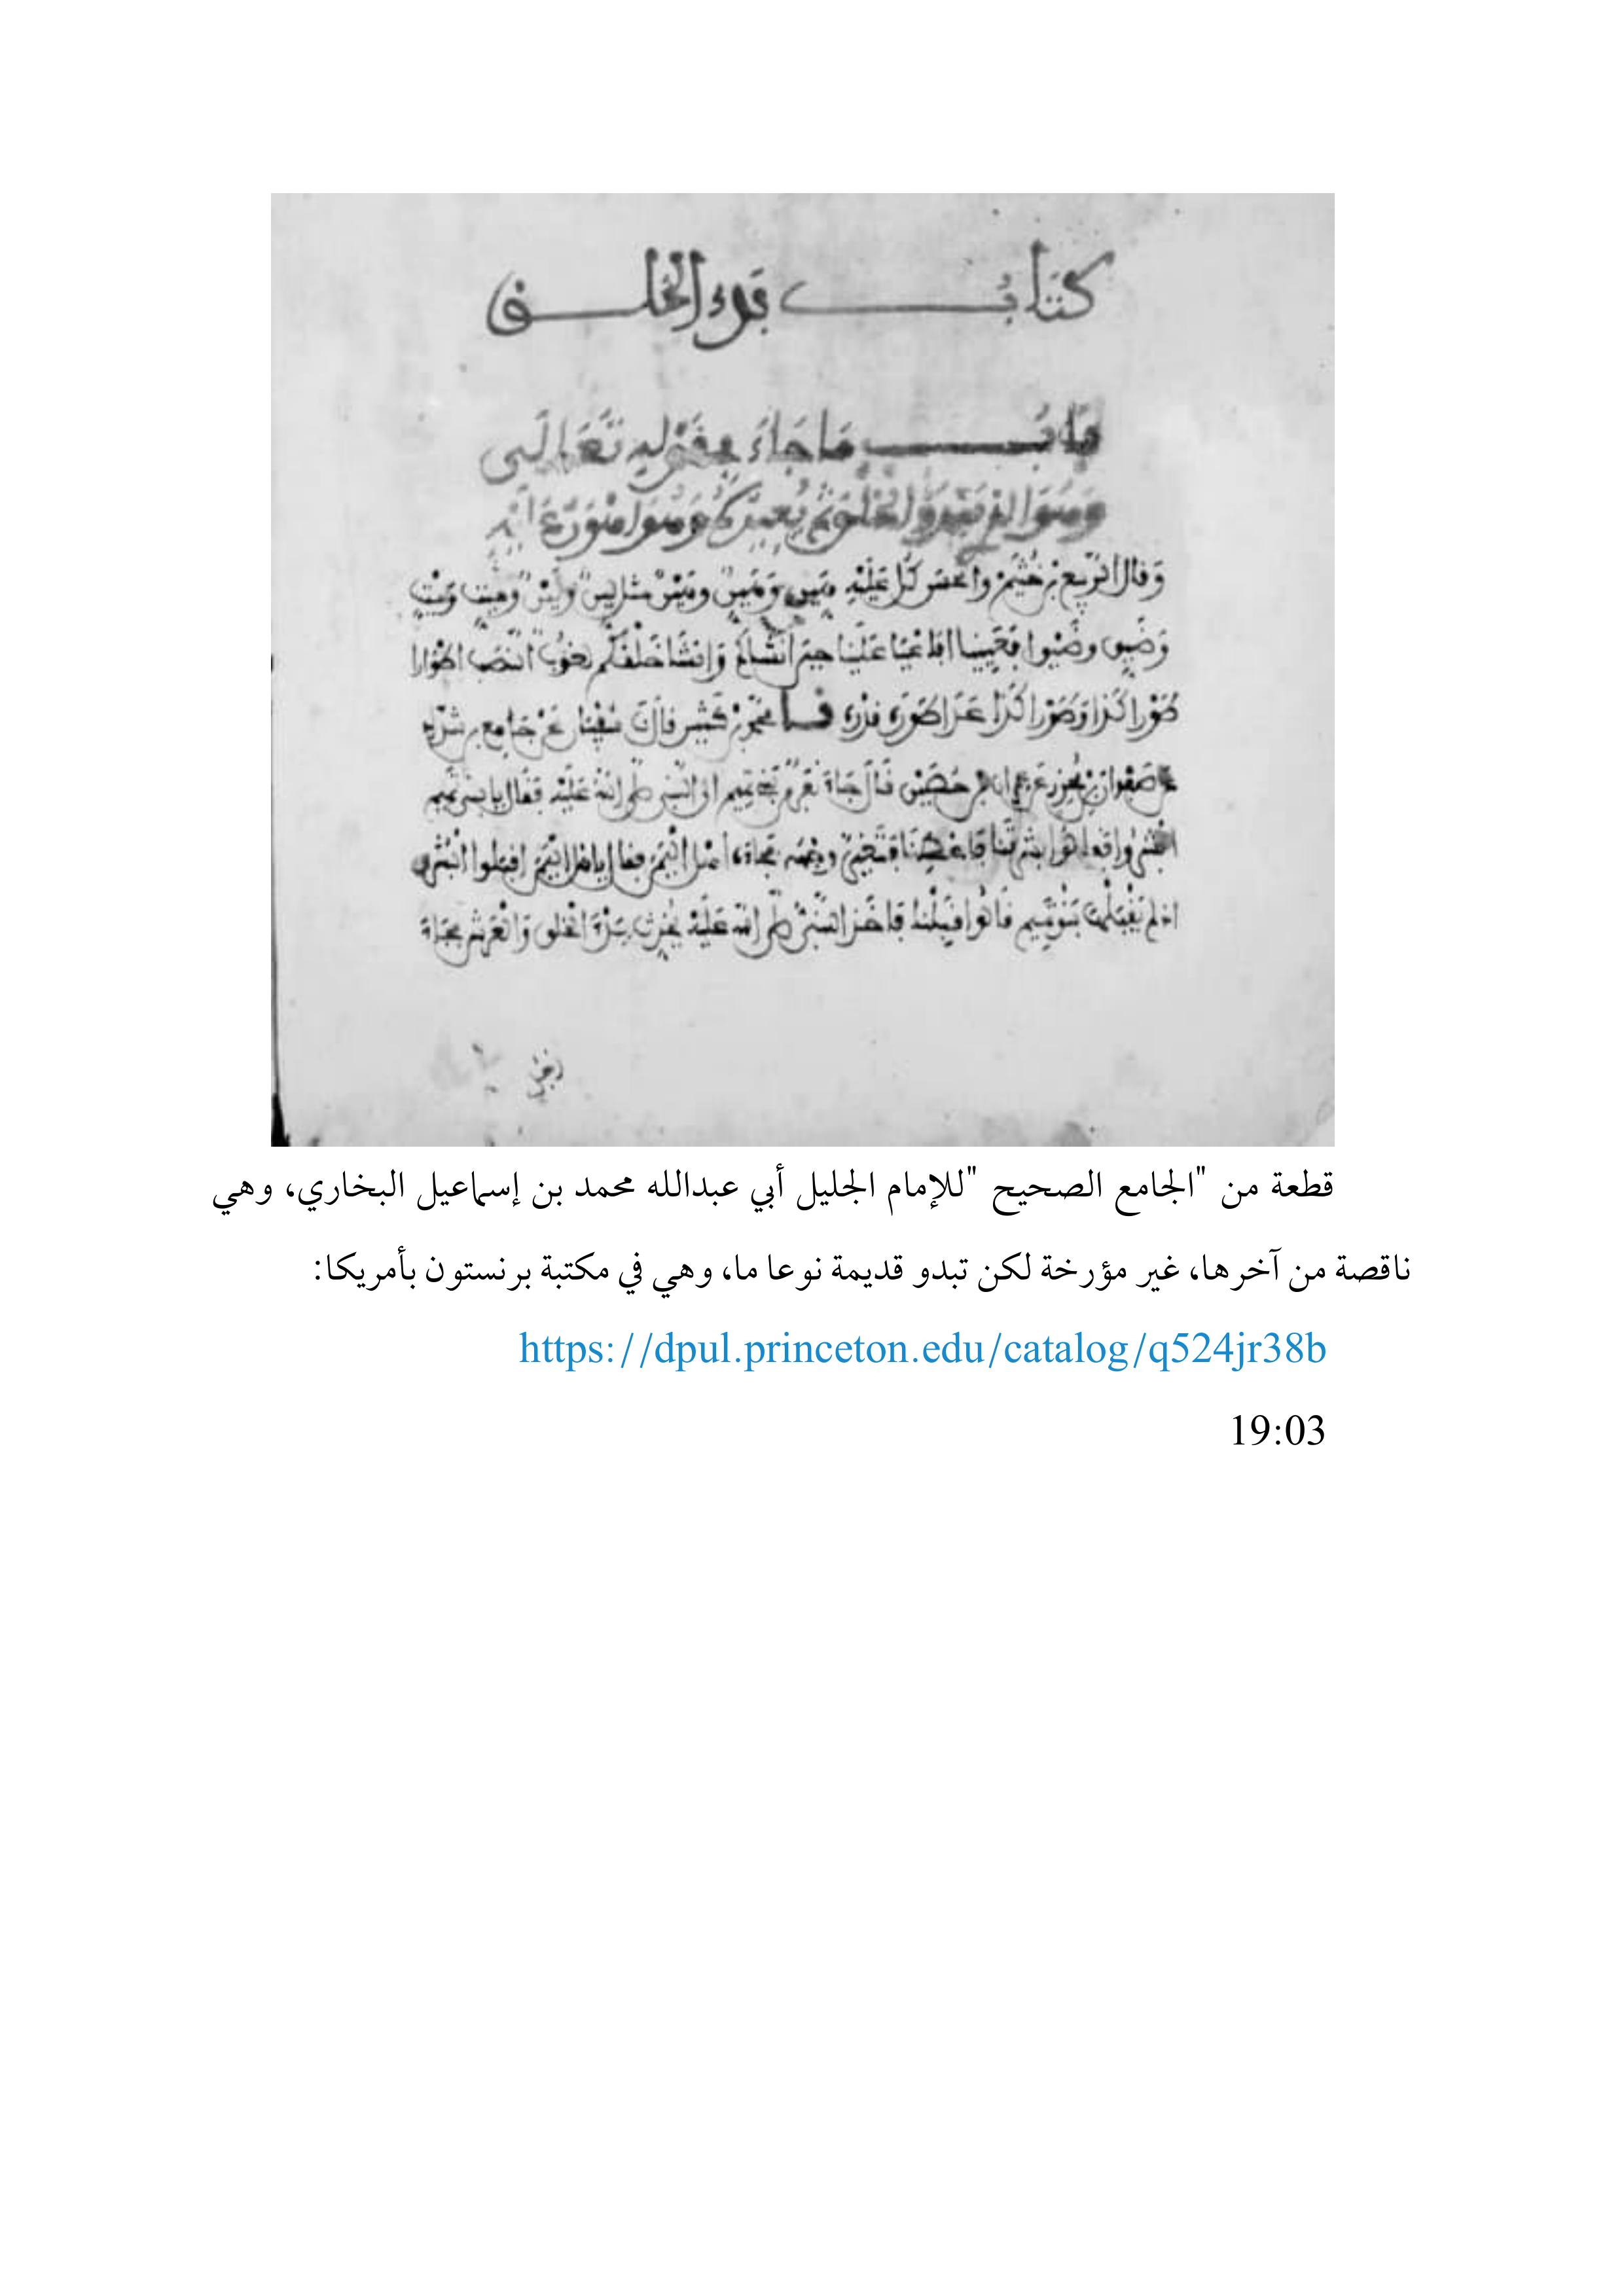 كتاب بدء الخلق
باب ما جاء في قوله تعالى
وهو الذي يبدؤ الخلق ثم يعيده وهو أهون عليه
وقال الربيع بن خثيم والحسن كل عليه هين وهين وهين مثل لين ولين وميت وميت
وضيق وضيق أفعيينا أفأعيا علينا حين أنشأكم وأنشأ خلقكم لغوب النصب أطوارا
طورا كذا وطورا كذا عدا طوره قدره نا محمد بن كثير قال سفين عن جامع بن شداد
عن صفوان بن محرز عن عمران بن حصين قال جاء نفر من بني تميم إلى النبي صلى الله عليه فقال يا بني تميم
أبشروا فقالوا بشرتنا فأعطنا فتغير وجهه فجاءه أهل اليمن فقال يا أهل اليمن اقبلوا البشرى
إذ لم يقبلها بنو تميم قالوا قبلنا فأخذ النبي صلى الله عليه يحدث بدء الخلق والعرش فجاء
قطعة من "الجامع الصحيح "للإمام الجليل أبي عبدالله محمد بن إسماعيل البخاري، وهي
ناقصة من آخرها، غير مؤرخة لكن تبدو قديمة نوعا ما، وهي في مكتبة برنستون بأمريكا:
https://dpul.princeton.edu/catalog/q524jr38b
19:03